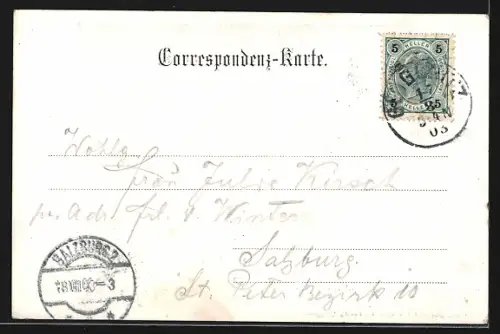 Correspondenz-Karte.
5 HELLER 5
Wohlg.
Frau Julie Kirsch
pr. Adr. frl. v. Winter
Salzburg.
St. Peter Bezirk 10
SALZBURG 2